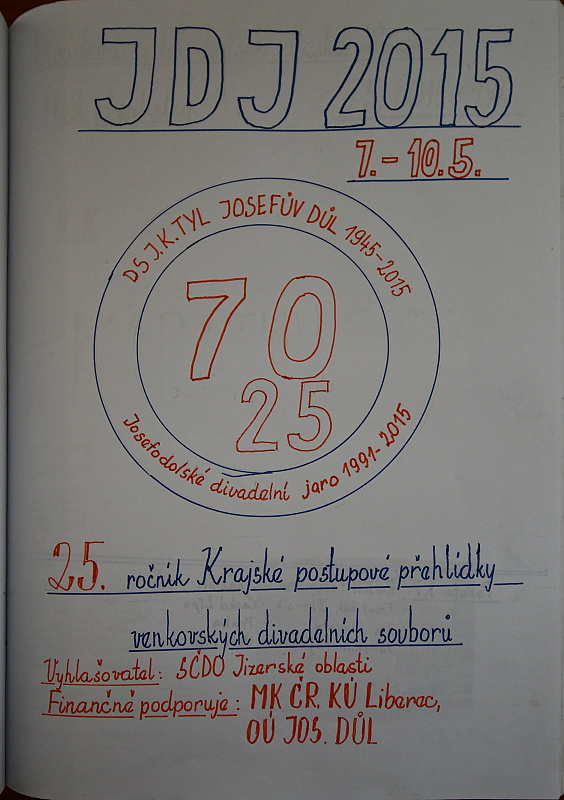 JDJ 2015
7.-10.5.
DS J.K.TYL JOSEFŮV DŮL 1945-2015
70
25
Josefodolské divadelní jaro 1991-2015
25. ročník Krajské postupové přehlídky
venkovských divadelních souborů
Vyhlašovatel: SČDO Jizerské oblasti
Finančně podporuje: MK ČR. KÚ Liberec,
OÚ JOS. DŮL